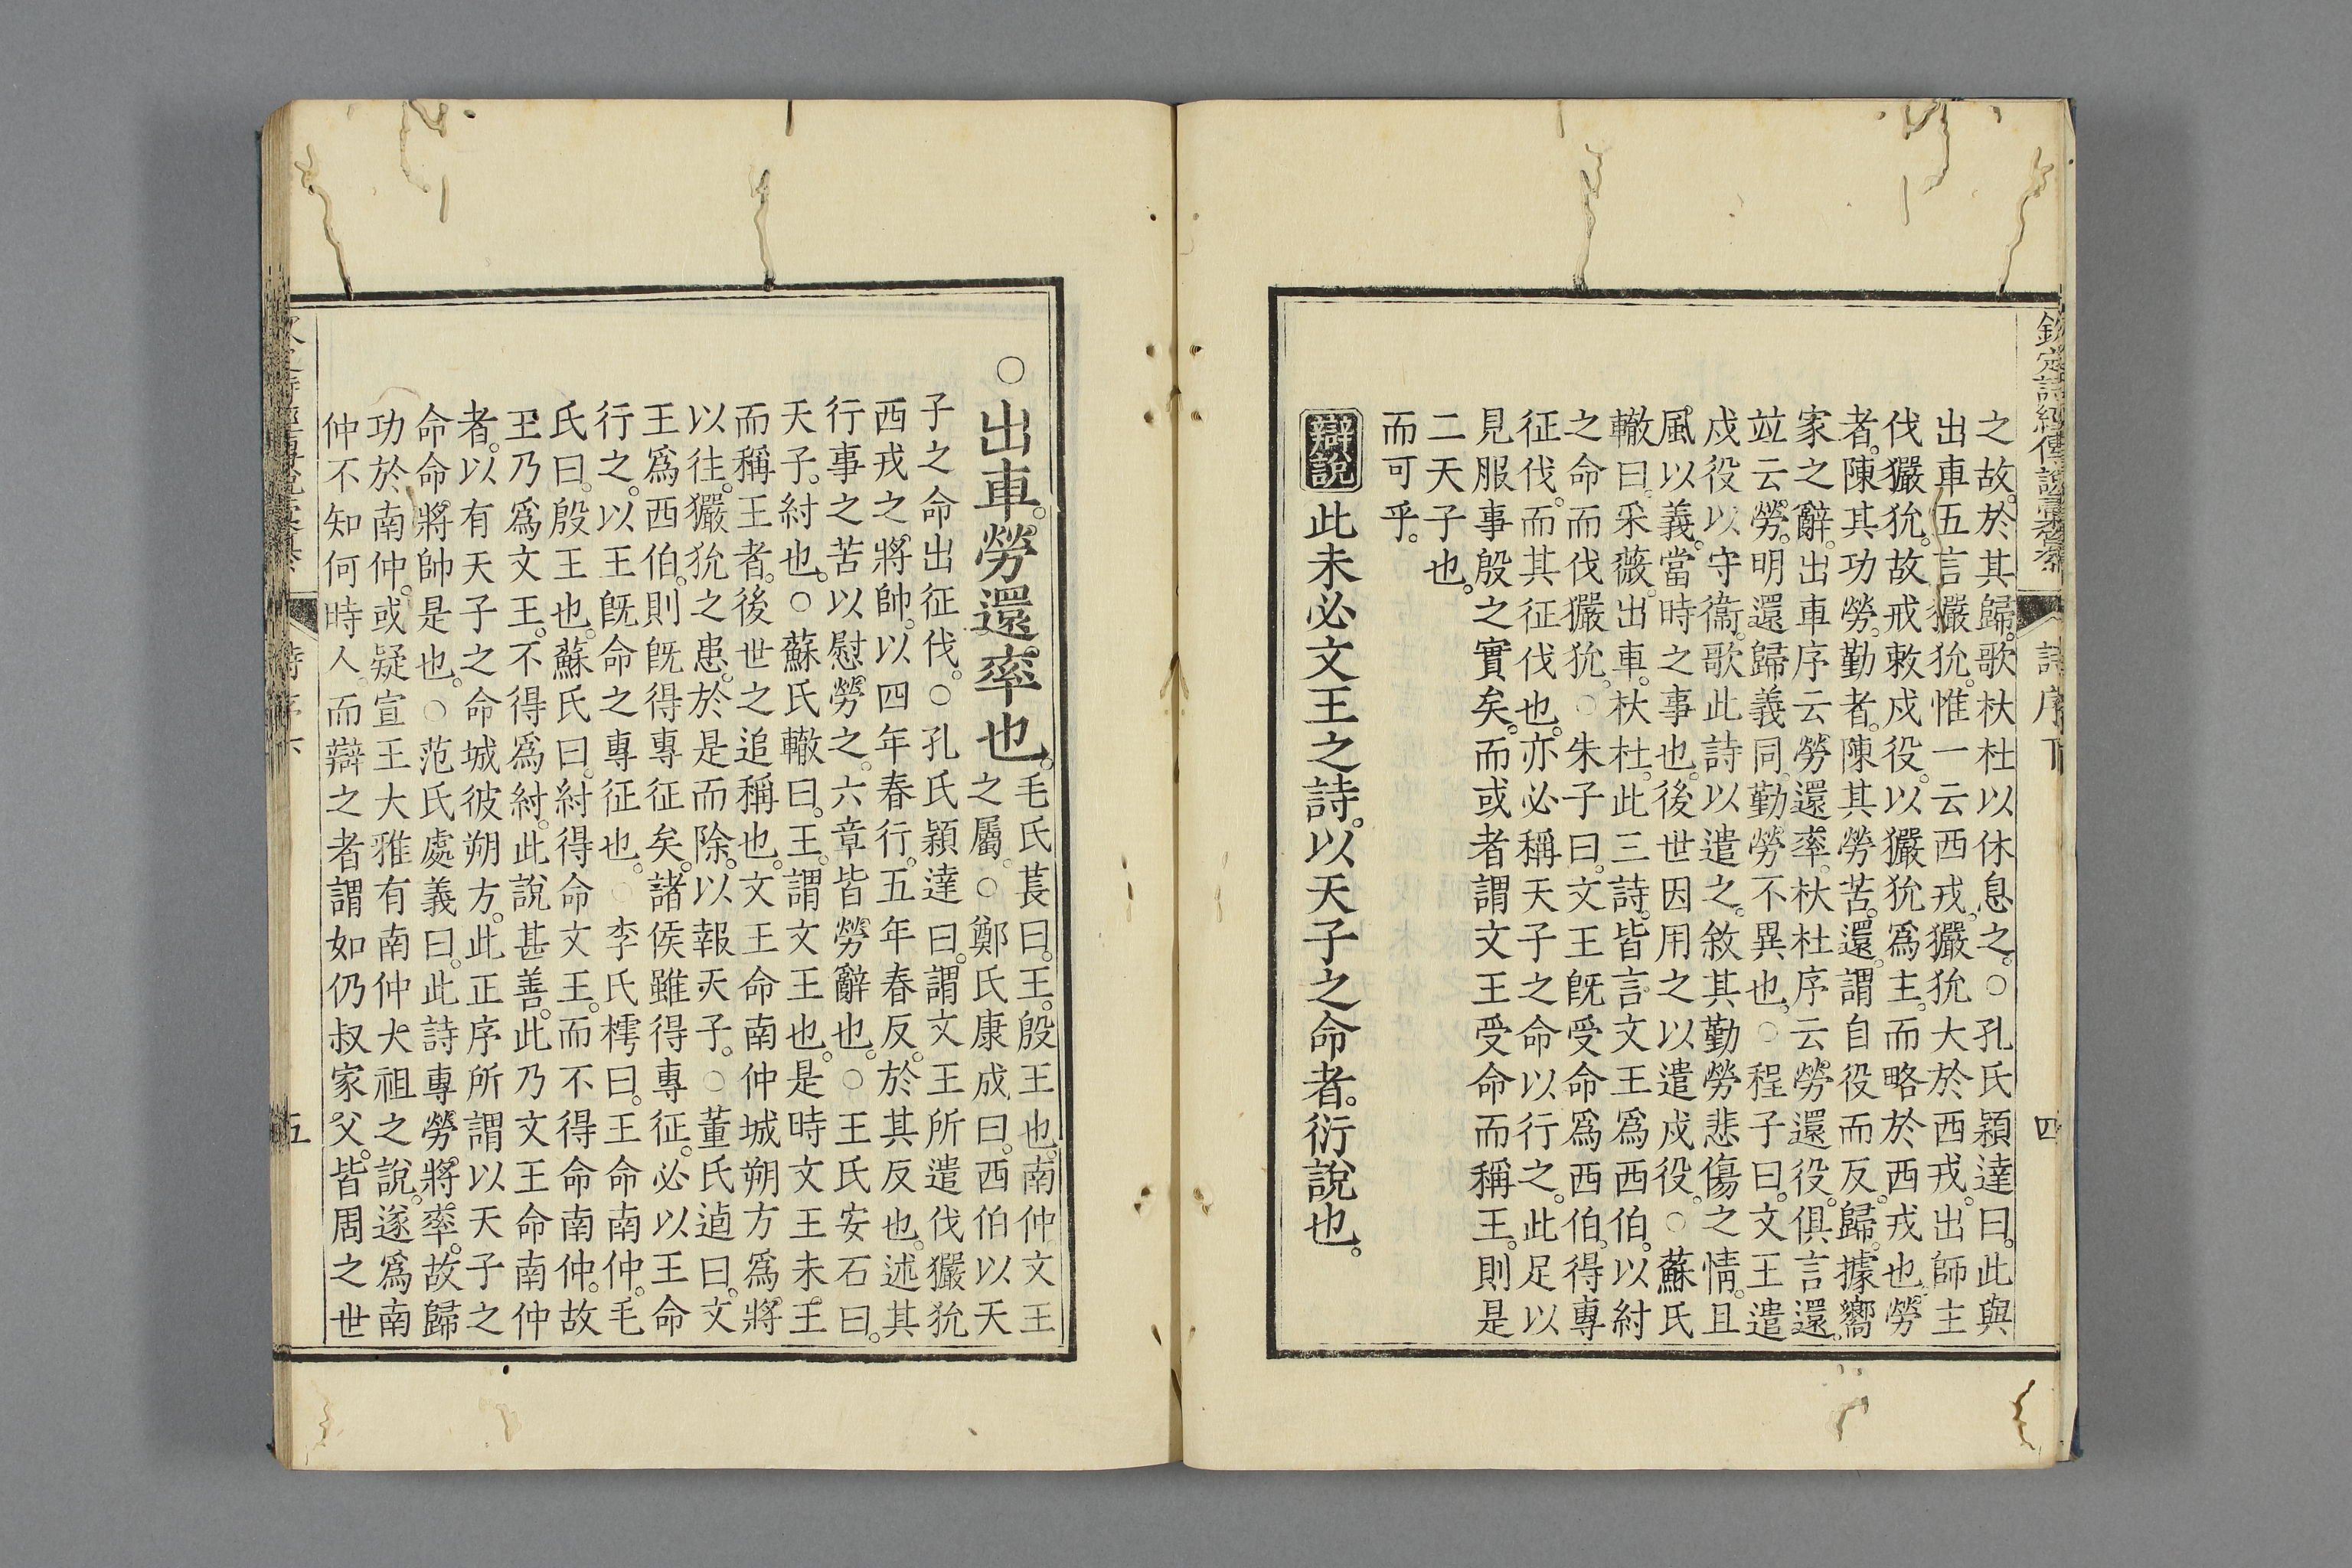 欽定詩經傳說彙纂
詩序下
四
之故。於其歸。歌杕杜以休息之。○孔氏穎達曰。此與
出車五言玁狁。惟一云西戎。玁狁大於西戎。出師主
伐玁狁。故戒敕戍役。以玁狁爲主。而略於西戎也。勞
者。陳其功勞。勤者。陳其勞苦。還。謂自役而反。歸。據嚮
家之辭。出車序云。勞還率。杕杜序云。勞還役。俱言還。
竝云勞。明還歸義同。勤勞不異也。○程子曰。文王遣
戍役以守衞。歌此詩以遣之。敘其勤勞悲傷之情。且
風以義。當時之事也。後世因用之以遣戍役。○蘇氏
轍曰。采薇。出車。杕杜。此三詩。皆言文王爲西伯。以紂
之命而伐玁狁。○朱子曰。文王旣受命爲西伯。得專
征伐。而其征伐也。亦必稱天子之命以行之。此足以
見服事殷之實矣。而或者謂文王受命而稱王。則是
二天子也。
而可乎。
辯說此未必文王之詩。以天子之命者。衍說也。
○出車。勞還率也。
毛氏萇曰。王。殷王也。南仲文王
之屬。○鄭氏康成曰。西伯以天
子之命出征伐。○孔氏穎達曰。謂文王所遣伐玁狁
西戎之。將帥。以四年春行。五年春反。於其反也。述其
行事之苦以慰勞之。六章皆勞辭也。○王氏安石曰。
天子。紂也。○蘇氏轍曰。王。謂文王也。是時文王未王
而稱王者。後世之追稱也。文王命南仲城朔方。爲將
以往。玁狁之患。於是而除。以報天子。○董氏逌曰。文
王爲西伯。則旣得專征矣。諸侯雖得專征。必以王命
行之。以王旣命之專征也。○李氏樗曰。王命南仲。毛
氏曰。殷王也。蘇氏曰。紂得命文王。而不得命南仲。故
王乃爲文王。不得爲紂。此說甚善。此乃文王命南仲
者。以有天子之命城彼朔方。此正序所謂以天子之
命命將帥是也。○范氏處義曰。此詩專勞將率。故歸
功於南仲。或疑宣王大雅有南仲大祖之說。遂爲南
仲不知何時人。而辯之者謂如仍叔家父。皆周之世
五